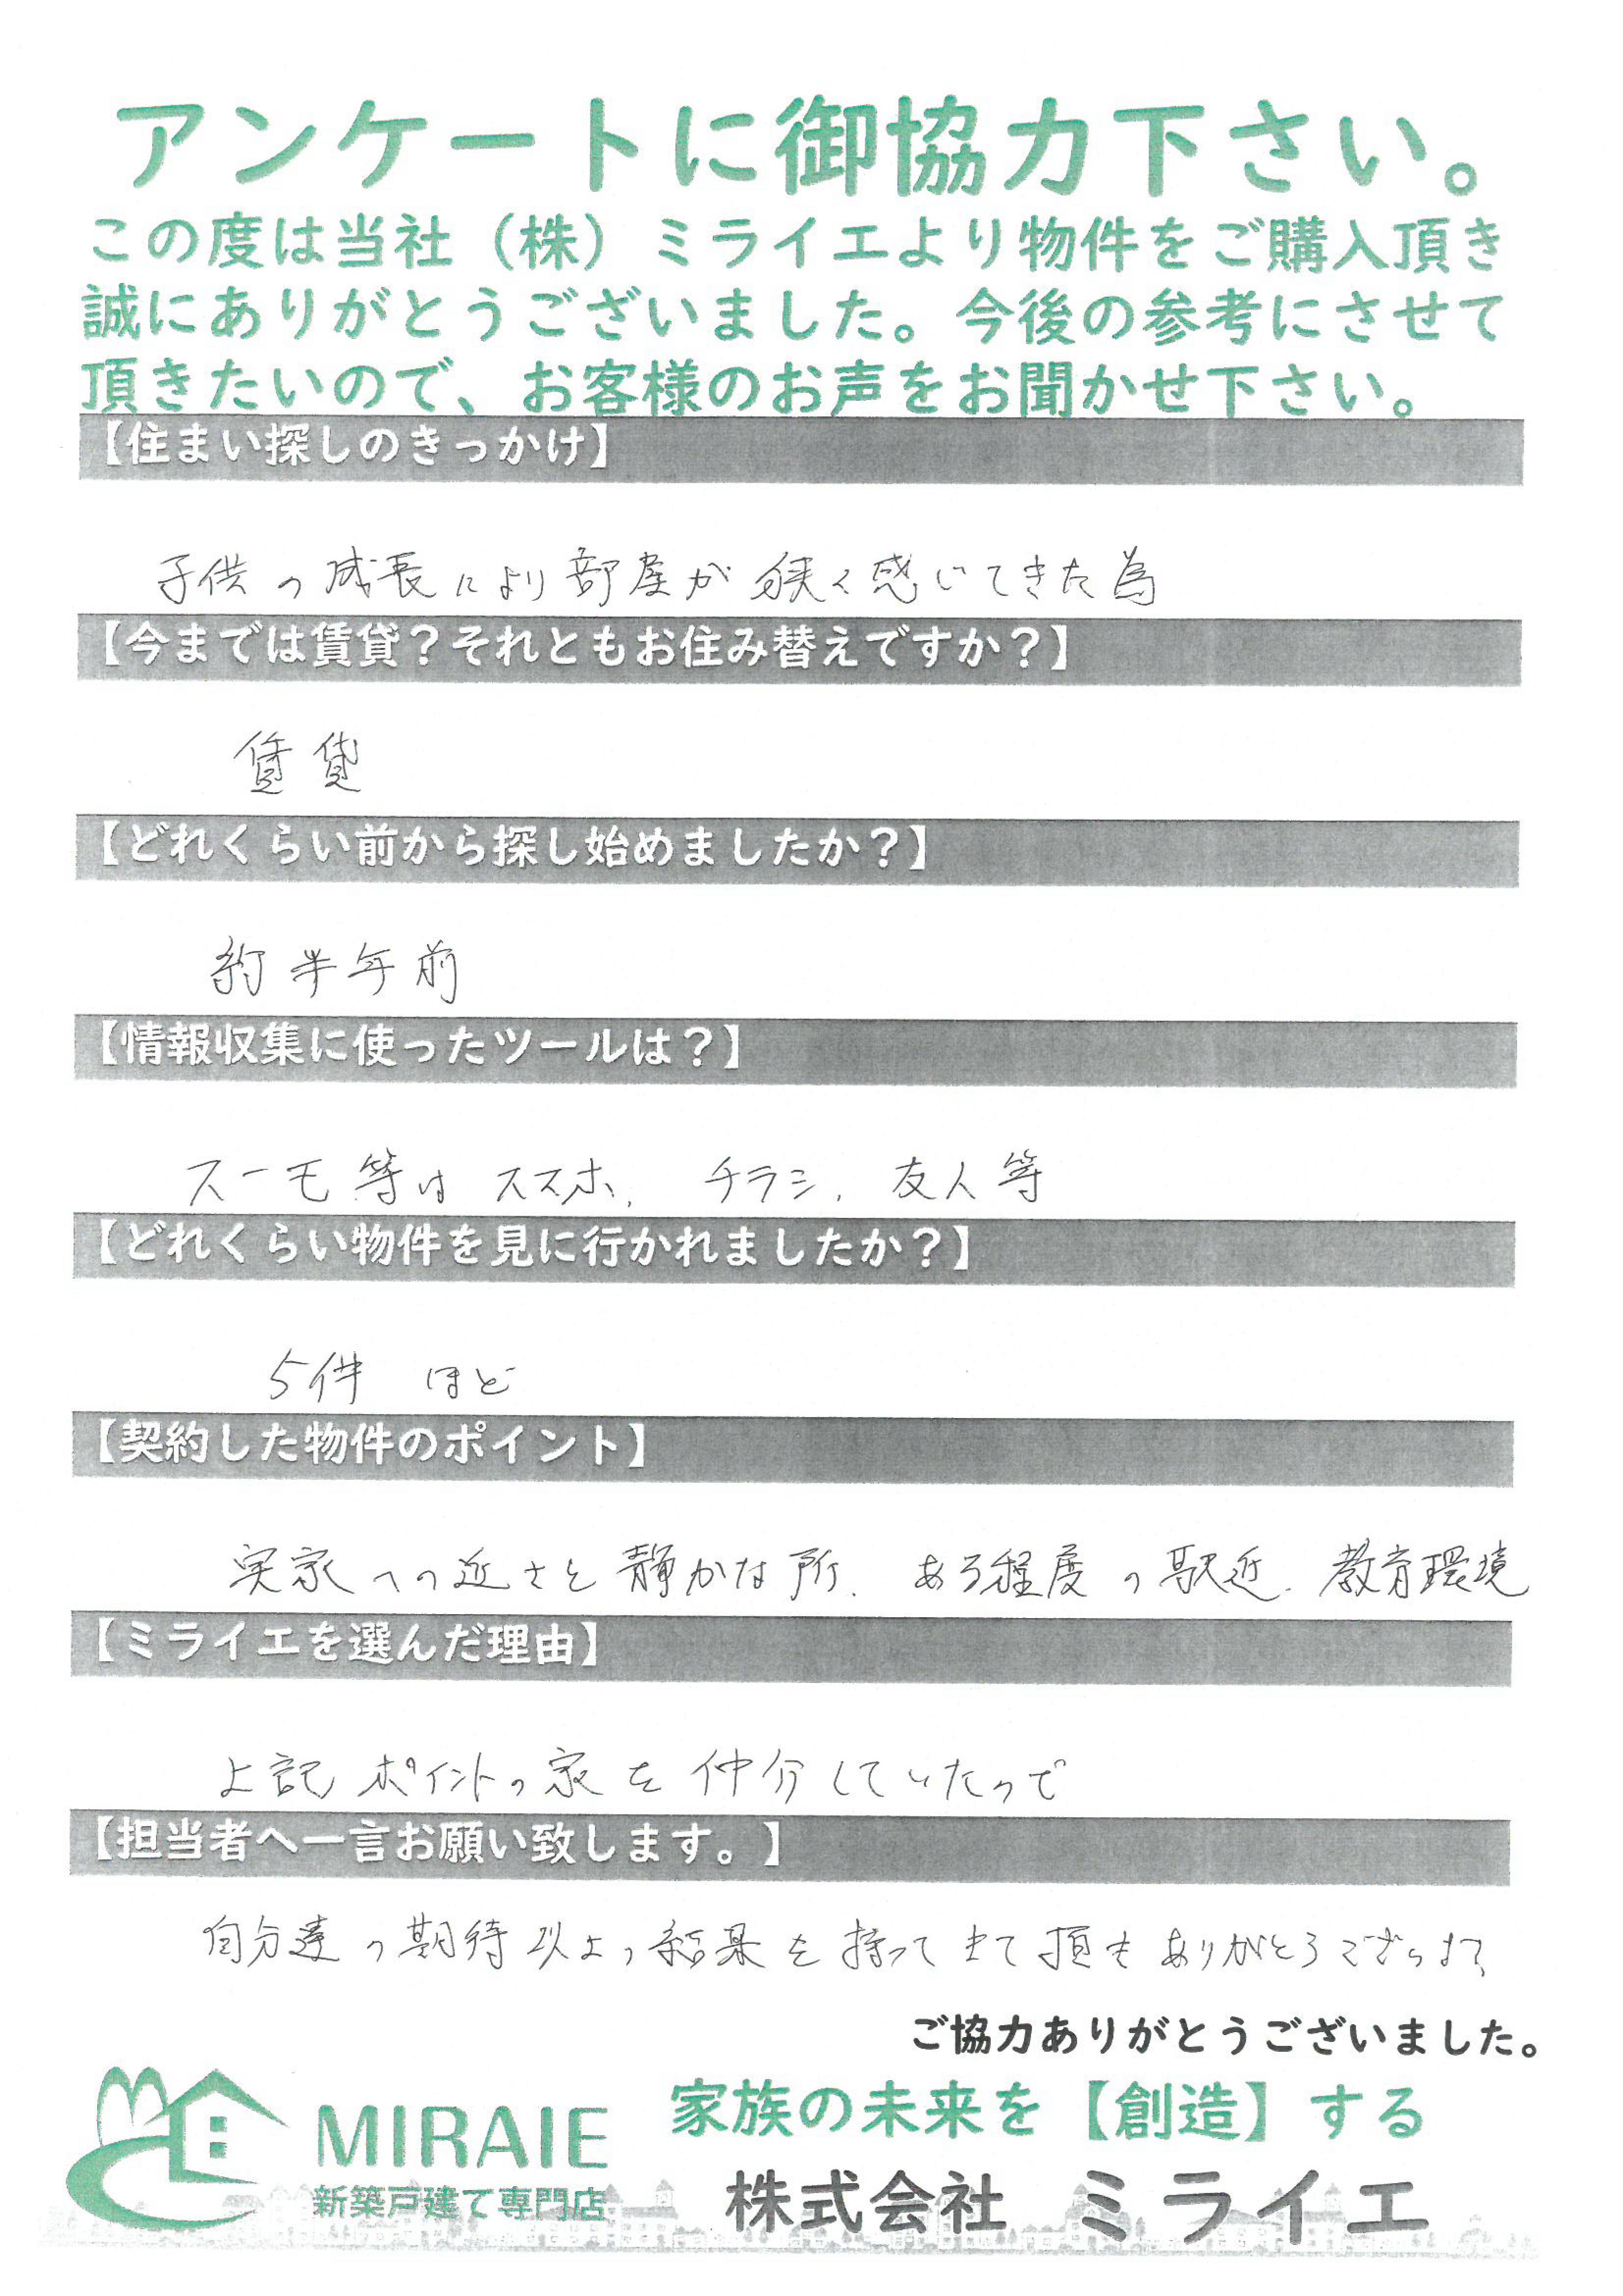 アンケートに御協力下さい。
この度は当社（株）ミライエより物件をご購入頂き
誠にありがとうございました。今後の参考にさせて
頂きたいので、お客様のお声をお聞かせ下さい。
【住まい探しのきっかけ】
子供の成長により部屋が狭く感じてきた為
【今までは賃貸？それともお住み替えですか？】
賃貸
【どれくらい前から探し始めましたか？】
約半年前
【情報収集に使ったツールは？】
スーモ等は スマホ、 チラシ、 友人等
【どれくらい物件を見に行かれましたか？】
5件 ほど
【契約した物件のポイント】
実家への近さと静かな所、 ある程度の駅近、教育環境
【ミライエを選んだ理由】
上記ポイントの家を仲介していたので
【担当者へ一言お願い致します。】
自分達の期待以上の結果を持ってきて頂き ありがとうございます
ご協力ありがとうございました。
MIRAIE
新築戸建て専門店
家族の未来を【創造】する
株式会社 ミライエ